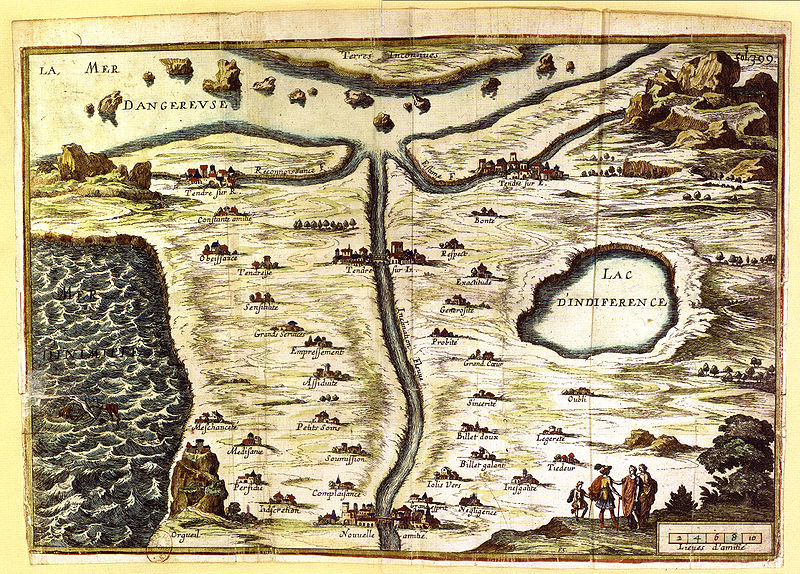 Terres Inconnues
LA MER
DANGEREVSE
fol. 399
Reconnoissance F.
Estime F.
Tendre sur R.
Tendre sur E.
Constante amitié
Bonté
Obeissance
Tendre sur In
Respect
Tendresse
Exactitude
LAC
D'INDIFERENCE
MER
Sensibilité
Generosité
Inclination Fleuve
Grands Services
Probité
Empressement
Grand Cœur
Assiduité
Sincerité
Oubli
Meschanceté
Petits Soins
Billet doux
Legereté
Medisance
Soumission
Billet galant
Tiedeur
Perfidie
Complaisance
Iolis Vers
Inesgalité
Indiscretion
Negligence
Orgueil
Nouvelle amitié
2 4 6 8 10
Lieues d'amitié